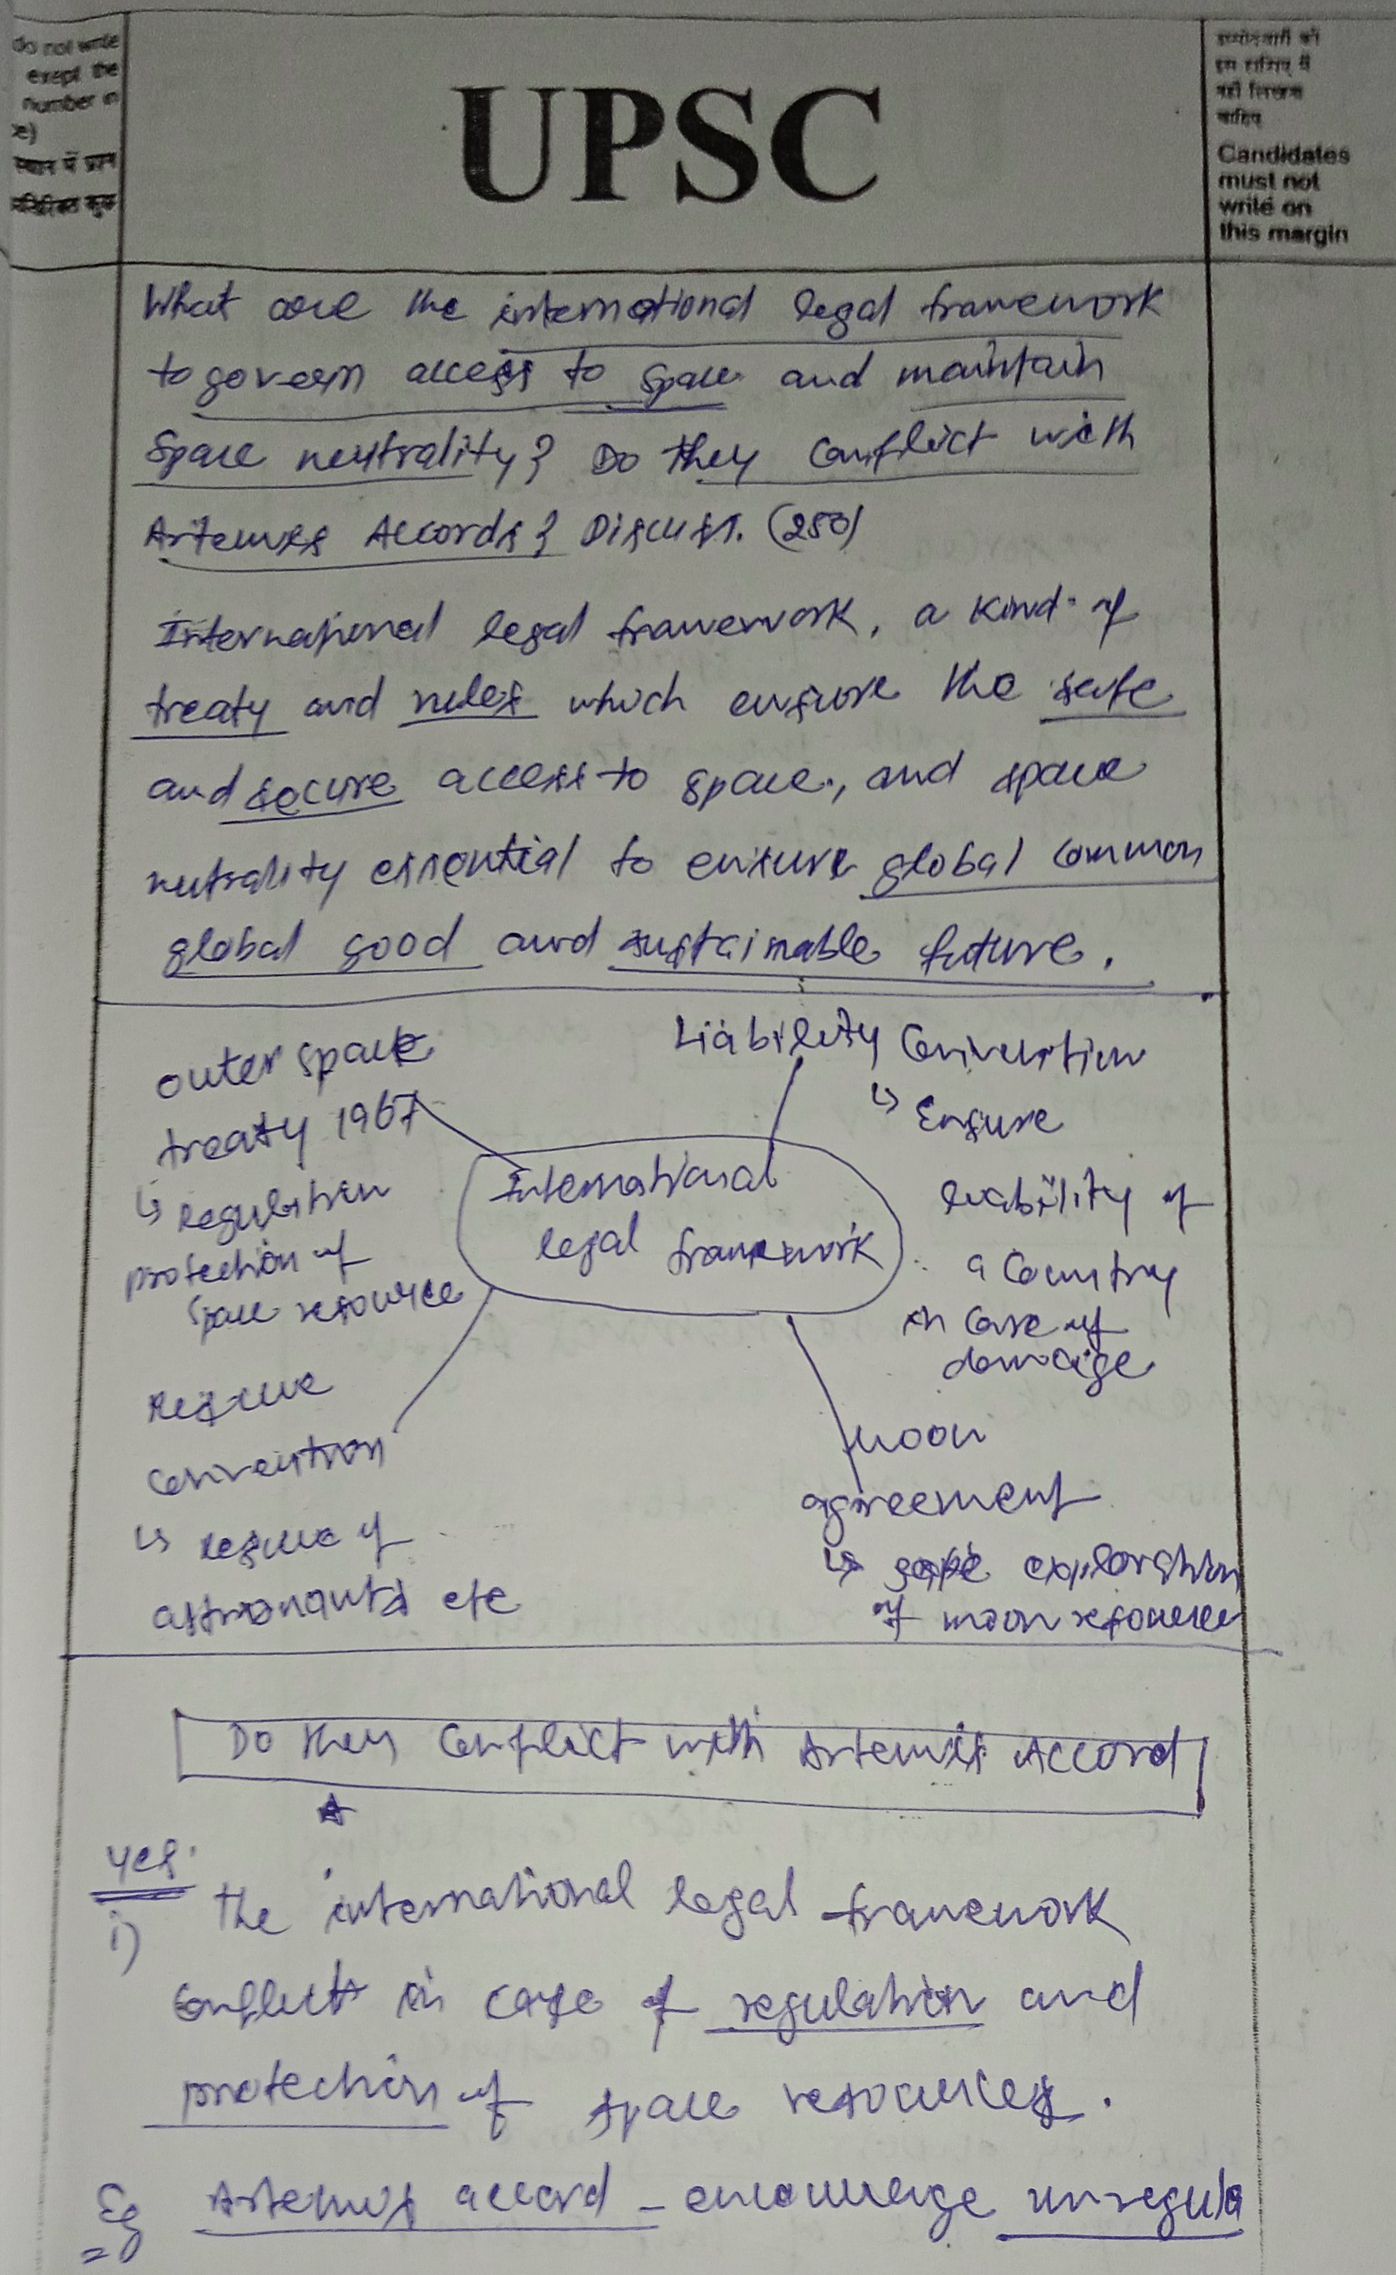 do not write
exept the
number in
e)
स्थान में प्रश्न
UPSC
उम्मीदवारों को
इस हाशिए में
नहीं लिखना
चाहिए
Candidates
must not
write on
this margin
What are the international legal framework
to govern access to space and maintain
space neutrality? Do they conflict with
Artemis Accords? Discuss. (250)
International legal framework, a kind of
treaty and rules which ensure the safe
and secure access to space, and space
neutrality essential to ensure global common
global good and sustainable future.
outer space
treaty 1967
↳ regulation
protection of
space resource
Liability Convention
↳ Ensure
liability of
a country
in case of
damage
International
legal framework
Rescue
convention
↳ rescue of
astronauts etc
Moon
agreement
↳ safe exploration
of moon resources
Do they conflict with Artemis Accord
Yes.
i) the international legal framework
conflict in case of regulation and
protection of space resources.
Eg Artemis accord - encourage unregula